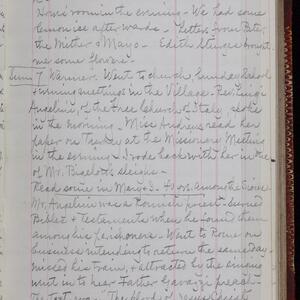 room in the evening - We had some
lemon ice afterwards - Letters from Pete,
the Mither & Mayo - Edith Stinges brought
me some flowers -
7 Warmer. Went to church, Sunday School
& evening meetings in the Village. Rev. Luigi
Angelini, of the Free Church of Italy, spoke
in the morning. Miss Andrews read her
paper on Turkey at the Missionary Meeting
in the evening - I rode back with her in the
of Mr. Bigelow's sleighs -
Read some in Mary's - 40 yrs. among the
Mr. Angelini was a Romish priest - burned
Bibles & Testaments when he found them
among his parishoners - Went to Rome on
business intending to return the same day
missed his train, & attracted by the singing
went in to hear Father Gavazzi preach -
The text was - The blood of Jesus Christ